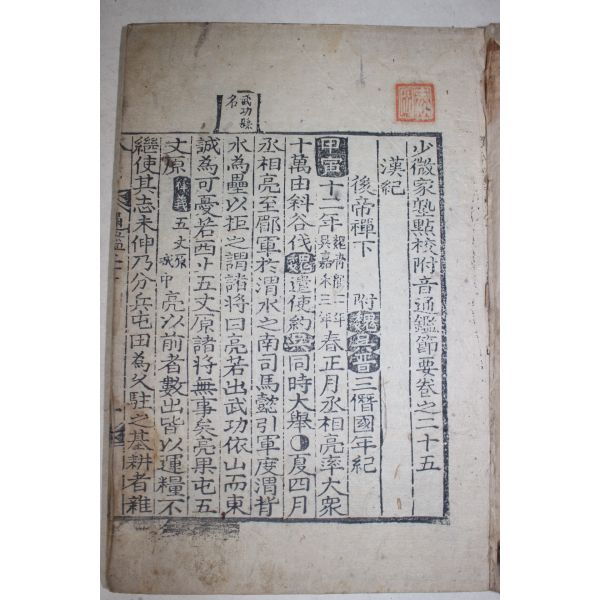 少微家塾點校附音通鑑節要卷之二十五
漢紀
後帝禪下 附魏吳晉三僭國年紀
甲寅十二年魏青龍二年吳嘉禾三年春正月丞相亮率大衆
十萬由斜谷伐魏遣使約吳同時大擧●夏四月
丞相亮至郿軍於渭水之南司馬懿引軍度渭背
水爲壘以拒之謂諸將曰亮若出武功依山而東
誠爲可憂若西上五丈原諸將無事矣亮果屯五
丈原釋義五丈原亮以前者數出皆以運糧不
繼使其志未伸乃分兵屯田爲久駐之基耕者雜
武功縣
名
通鑑二十